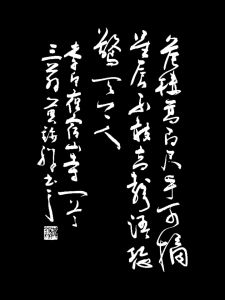 危樓高百尺手可摘
星辰不敢高聲語恐
驚天上人
李白夜宿山寺一首